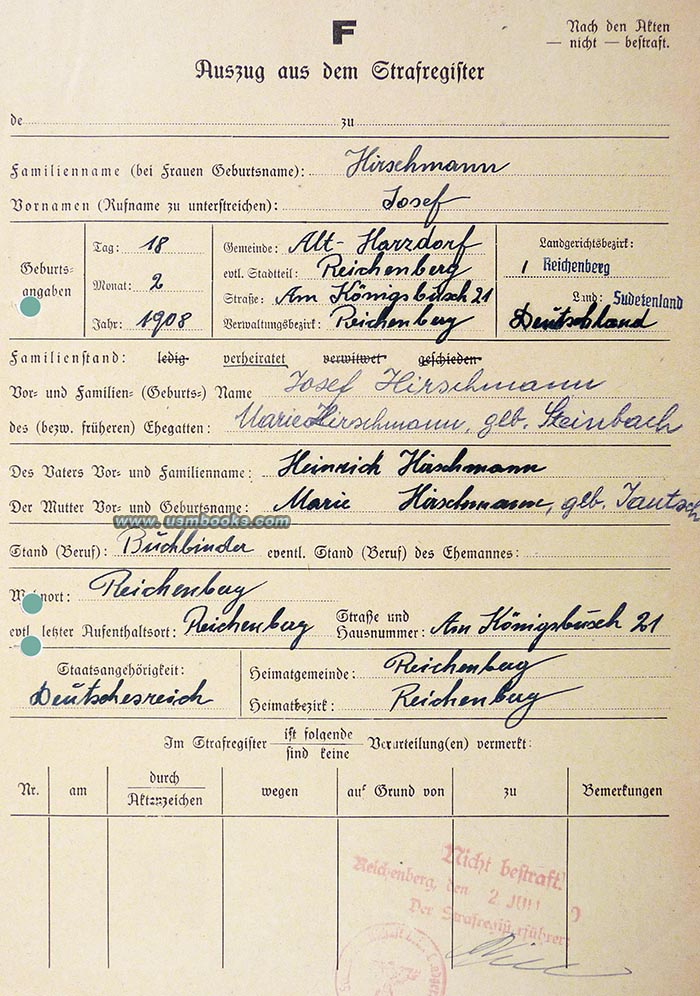 F
Nach den Akten
— nicht — bestraft.
Auszug aus dem Strafregister
de zu
Familienname (bei Frauen Geburtsname): Hirschmann
Vornamen (Rufname zu unterstreichen): Josef
Geburts-
angaben
Tag: 18
Monat: 2
Jahr: 1908
Gemeinde: Alt-Harzdorf
evtl. Stadtteil: Reichenberg
Straße: Am Königsbusch 21
Verwaltungsbezirk: Reichenberg
Landgerichtsbezirk:
Reichenberg
Land: Sudetenland
Deutschland
Familienstand: ledig verheiratet verwitwet geschieden
Vor- und Familien- (Geburts-) Name Josef Hirschmann
des (bezw. früheren) Ehegatten: Marie Hirschmann, geb. Steinbach
Des Vaters Vor- und Familienname: Heinrich Hirschmann
Der Mutter Vor- und Geburtsname: Marie Hirschmann, geb. Jautsch
www.usmbooks.com
Stand (Beruf): Buchbinder eventl. Stand (Beruf) des Ehemannes:
Wohnort: Reichenberg
evtl. letzter Aufenthaltsort: Reichenberg
Straße und
Hausnummer: Am Königsbusch 21
Staatsangehörigkeit:
Deutschesreich
Heimatgemeinde: Reichenberg
Heimatbezirk: Reichenberg
Im Strafregister ist folgende
sind keine Verurteilung(en) vermerkt:
Nr. am durch
Aktenzeichen wegen auf Grund von zu Bemerkungen
Nicht bestraft.
Reichenberg, den 2. JULI
Der Strafregisterführer: